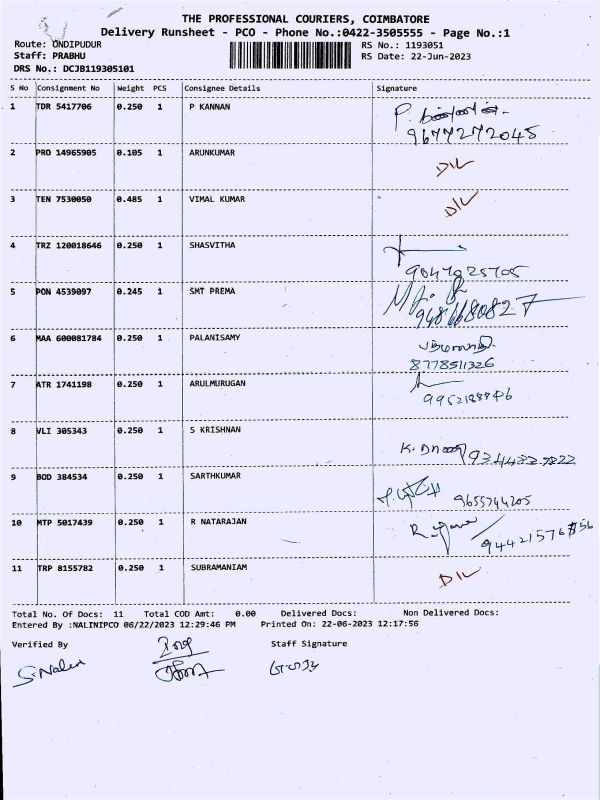 THE PROFESSIONAL COURIERS, COIMBATORE
Delivery Runsheet - PCO - Phone No.:0422-3505555 - Page No.:1
Route: ONDIPUDUR
RS No.: 1193051
Staff: PRABHU
RS Date: 22-Jun-2023
DRS No.: DCJB119305101
S No Consignment No Weight PCS Consignee Details Signature
1 TDR 5417706 0.250 1 P KANNAN P.
9677272045
2 PRO 14965905 0.105 1 ARUNKUMAR D/L
3 TEN 7530050 0.485 1 VIMAL KUMAR D/L
4 TRZ 120018646 0.250 1 SHASVITHA
5 PON 4539097 0.245 1 SMT PREMA
6 MAA 600081784 0.250 1 PALANISAMY
8778511326
7 ATR 1741198 0.250 1 ARULMURUGAN
8 VLI 305343 0.250 1 S KRISHNAN
9 BOD 384534 0.250 1 SARTHKUMAR
9655744205
10 MTP 5017439 0.250 1 R NATARAJAN
11 TRP 8155782 0.250 1 SUBRAMANIAM D/L
Total No. Of Docs: 11 Total COD Amt: 0.00 Delivered Docs: Non Delivered Docs:
Entered By :NALINIPCO 06/22/2023 12:29:46 PM Printed On: 22-06-2023 12:17:56
Verified By Staff Signature
S.Nalin